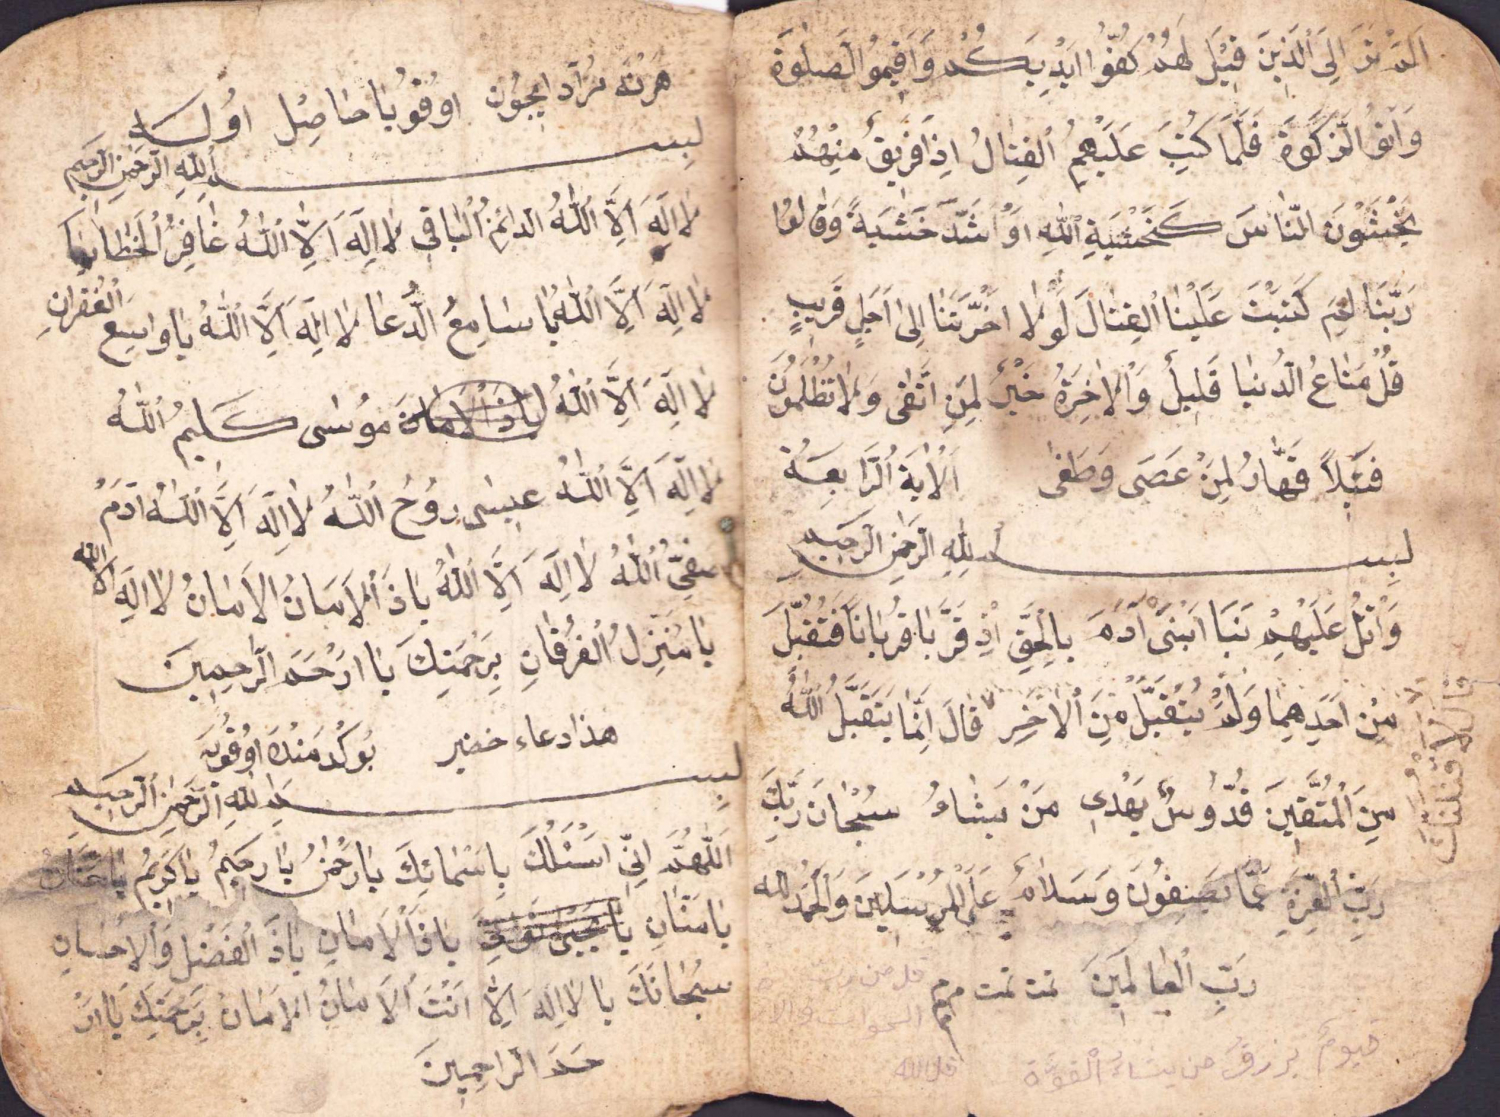 اَلَمْ تَرَ اِلَى الَّذِينَ قِيْلَ لَهُمْ كُفُّوا اَيْدِيَكُمْ وَاَقِيمُوا الصَّلٰوةَ
وَاٰتُوا الزَّكٰوةَ فَلَمَّا كُتِبَ عَلَيْهِمُ الْقِتَالُ اِذَا فَرِيقٌ مِنْهُمْ
يَخْشَوْنَ النَّاسَ كَخَشْيَةِ اللّٰهِ اَوْ اَشَدَّ خَشْيَةً وَقَالُوا
رَبَّنَا لِمَ كَتَبْتَ عَلَيْنَا الْقِتَالَ لَوْلَا اَخَّرْتَنَا اِلٰى اَجَلٍ قَرِيبٍ
قُلْ مَتَاعُ الدُّنْيَا قَلِيلٌ وَالْاٰخِرَةُ خَيْرٌ لِمَنِ اتَّقٰى وَلَا تُظْلَمُونَ
فَتِيلًا قَهَّارٌ لِمَنْ عَصَى وَطَغٰى اَلْاٰيَةُ الرَّابِعَةُ
بِسْمِ اللّٰهِ الرَّحْمٰنِ الرَّحِيمِ
وَاتْلُ عَلَيْهِمْ نَبَاَ ابْنَيْ اٰدَمَ بِالْحَقِّ اِذْ قَرَّبَا قُرْبَانًا فَتُقُبِّلَ
مِنْ اَحَدِهِمَا وَلَمْ يُتَقَبَّلْ مِنَ الْاٰخَرِ قَالَ اِنَّمَا يَتَقَبَّلُ اللّٰهُ
قَالَ لَاَقْتُلَنَّكَ
مِنَ الْمُتَّقِينَ قُدُّوسٌ يَهْدِي مَنْ يَشَاءُ سُبْحَانَ رَبِّكَ
رَبِّ الْعِزَّةِ عَمَّا يَصِفُونَ وَسَلَامٌ عَلَى الْمُرْسَلِينَ وَالْحَمْدُ لله
رَبِّ الْعَالَمِينَ تمت تمت م م
قل من
السموات والار
قيوم يرزق من يشاء القوة قل الله
هَرْنَه مُرَاد اِيچُون اوُقُويَا حَاصِل اوُلَه
بِسْمِ اللّٰهِ الرَّحْمٰنِ الرَّحِيمِ
لَا اِلٰهَ اِلَّا اللّٰهُ الدَّائِمُ الْبَاقِي لَا اِلٰهَ اِلَّا اللّٰهُ غَافِرُ الْخَطَايَا
لَا اِلٰهَ اِلَّا اللّٰهُ يَا سَامِعُ الدُّعَا لَا اِلٰهَ اِلَّا اللّٰهُ يَا وَاسِعَ الْغُفْرَانِ
لَا اِلٰهَ اِلَّا اللّٰهُ مُوسٰى كَلِيمُ اللّٰهُ
لَا اِلٰهَ اِلَّا اللّٰهُ عِيسٰى رُوحُ اللّٰهُ لَا اِلٰهَ اِلَّا اللّٰهُ اٰدَمُ
صَفِيُّ اللّٰهُ لَا اِلٰهَ اِلَّا اللّٰهُ يَا ذَا الْاَمَانُ الْاَمَانُ لَا اِلٰهَ اِلَّا اللّٰه
يَا مُنَزِّلُ الْفُرْقَانِ بِرَحْمَتِكَ يَا اَرْحَمَ الرَّاحِمِينَ
هذا دعاء خضير
بِسْمِ اللّٰهِ الرَّحْمٰنِ الرَّحِيمِ
اَللّٰهُمَّ اِنِّي اَسْئَلُكَ بِاَسْمَائِكَ يَا رَحْمٰنُ يَا رَحِيمُ يَا كَرِيمُ يَا حَنَّانُ
يَا مَنَّانِ يَا ذَا الْاَمَانِ يَا ذَا الْفَضْلِ وَالْاِحْسَانِ
سُبْحَانَكَ يَا لَا اِلٰهَ اِلَّا اَنْتَ اَلْاَمَانُ الْاَمَانُ بِرَحْمَتِكَ يَا اَرْ
حَمَ الرَّاحِمِينَ